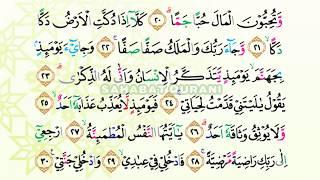 وَّتُحِبُّوْنَ الْمَالَ حُبًّا جَمًّا ۝٢٠ كَلَّآ اِذَا دُكَّتِ الْاَرْضُ دَكًّا
دَكًّا ۝٢١ وَّجَآءَ رَبُّكَ وَالْمَلَكُ صَفًّا صَفًّا ۝٢٢ وَجِايْۤءَ يَوْمَىِٕذٍۢ
بِجَهَنَّمَ يَوْمَىِٕذٍ يَّتَذَكَّرُ الْاِنْسَانُ وَاَنّٰى لَهُ الذِّكْرٰى ۝٢٣
SAHABATQURANI
يَقُوْلُ يٰلَيْتَنِيْ قَدَّمْتُ لِحَيَاتِيْ ۝٢٤ فَيَوْمَىِٕذٍ لَّا يُعَذِّبُ عَذَابَهٗٓ اَحَدٌ ۝٢٥
وَّلَا يُوْثِقُ وَثَاقَهٗٓ اَحَدٌ ۝٢٦ يٰٓاَيَّتُهَا النَّفْسُ الْمُطْمَىِٕنَّةُ ۝٢٧ ارْجِعِيْٓ
اِلٰى رَبِّكِ رَاضِيَةً مَّرْضِيَّةً ۝٢٨ فَادْخُلِيْ فِيْ عِبٰدِيْ ۝٢٩ وَادْخُلِيْ جَنَّتِيْ ۝٣٠